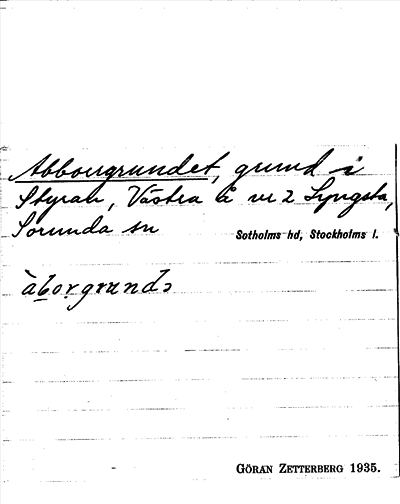 Abborrgrundet, grund i
Styran, Västra å nr 2 Lyngsta,
Sorunda sn
Sotholms hd, Stockholms l.
àborgrundə
GÖRAN ZETTERBERG 1935.